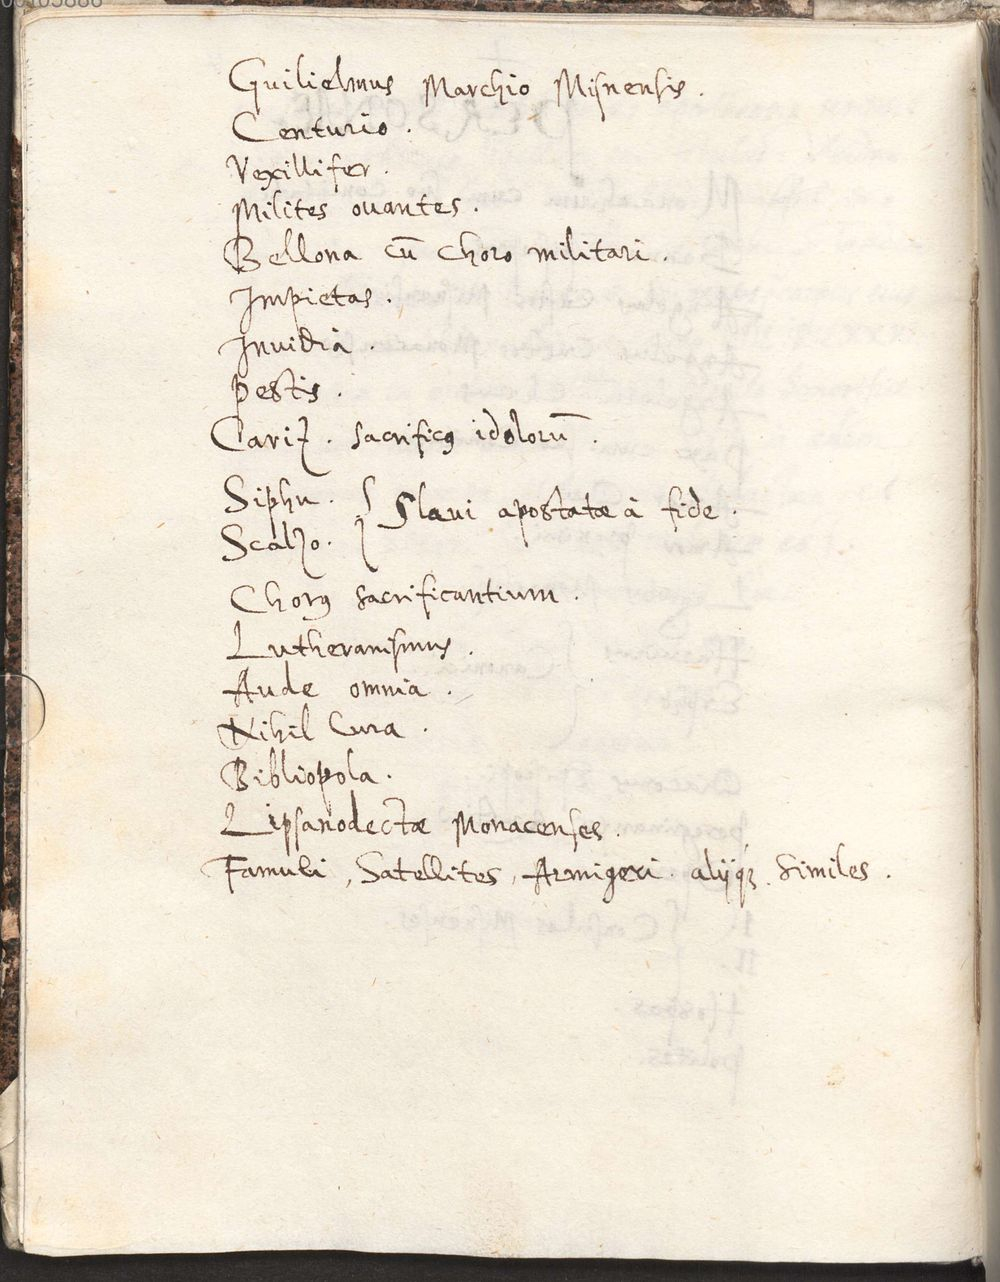 Guilielmus Marchio Misnensis.
Centurio.
Vexillifer.
Milites ouantes.
Bellona cū Choro militari.
Impietas.
Inuidia.
Pestis.
Cariz. sacrificꝰ idolorū.
Siphu. } Slaui apostatæ à fide.
Scalzo.
Chorꝰ sacrificantium.
Lutheranismus.
Aude omnia.
Nihil Cura.
Bibliopola.
Lipsanodectæ Monacenses.
Famuli, Satellites, Armigeri alijqꝫ similes.